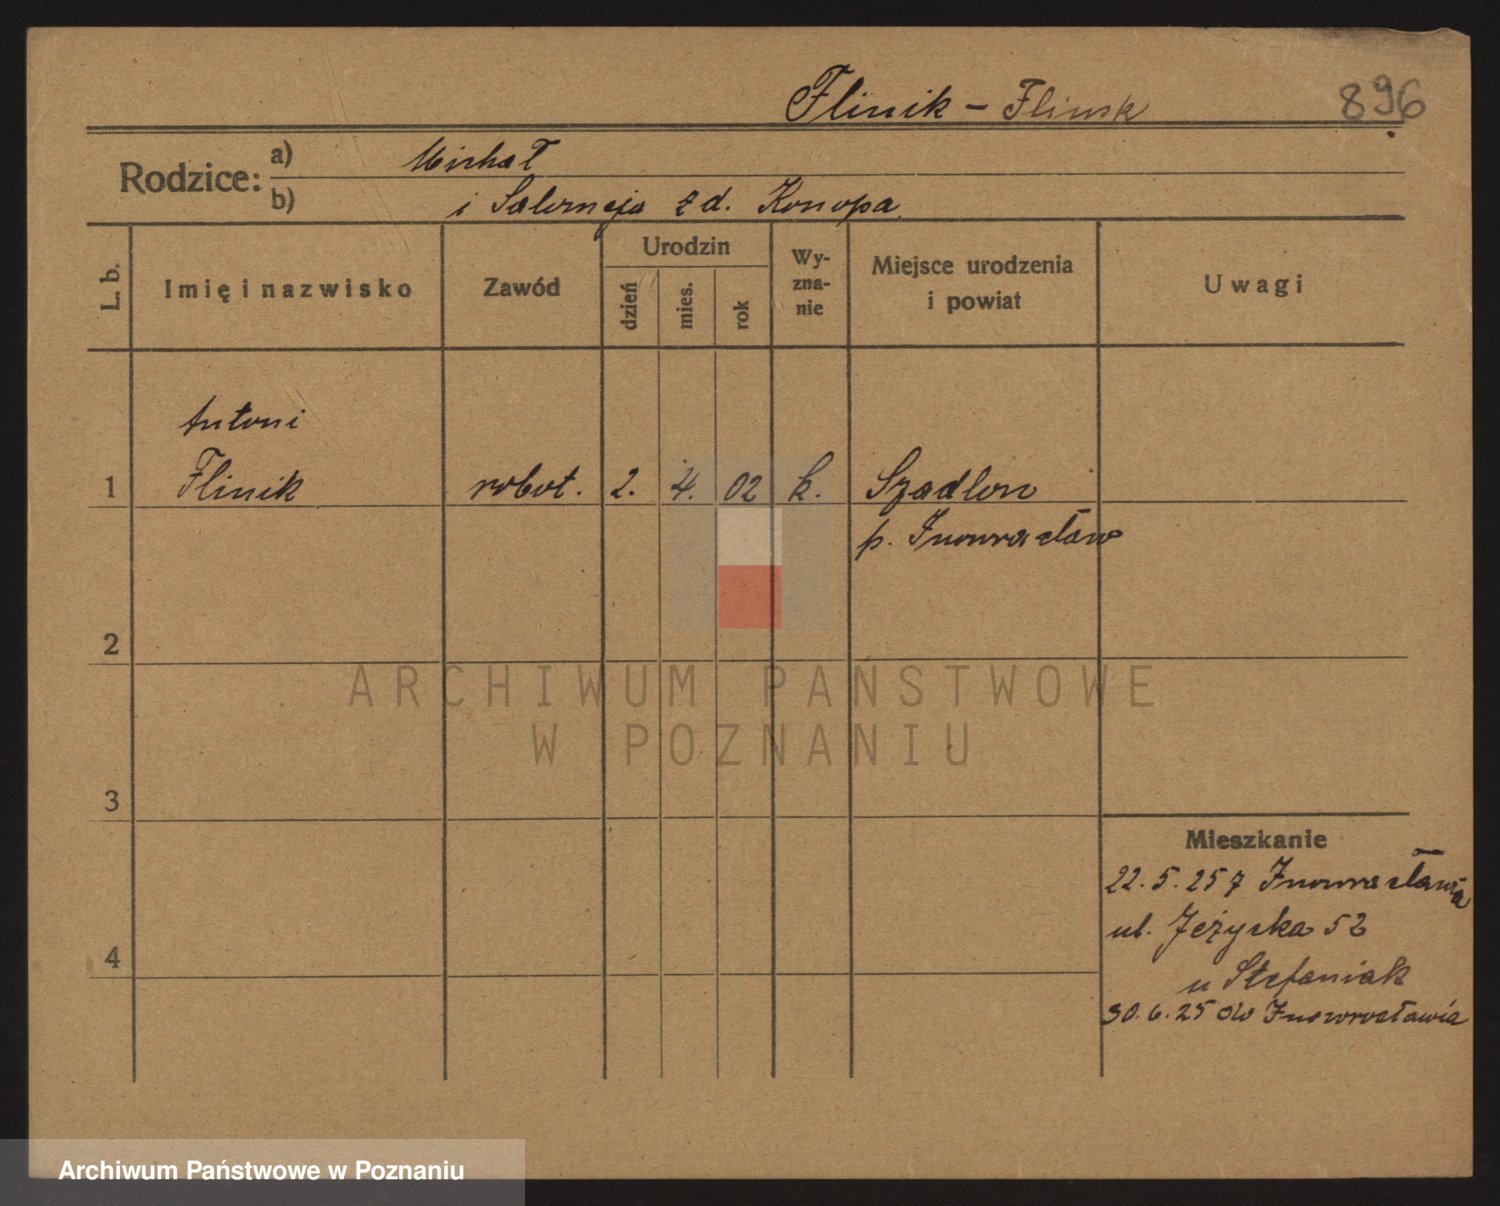 Flinik - Flinsk
896
Rodzice: a) Michał
b) i Salomeja z d. Konopa
L. b.
Imię i nazwisko
Zawód
Urodzin
dzień
mies.
rok
Wy-
zna-
nie
Miejsce urodzenia
i powiat
Uwagi
Antoni
1 Flinik robot. 2. 4. 02 k. Szadlon
p. Inowracław
2
ARCHIWUM PAŃSTWOWE
W POZNANIU
3
Mieszkanie
22. 5. 25 z Inowracławia
ul. Jeżycka 52
4
u Stefaniak
30. 6. 25 do Inowrocławia
Archiwum Państwowe w Poznaniu